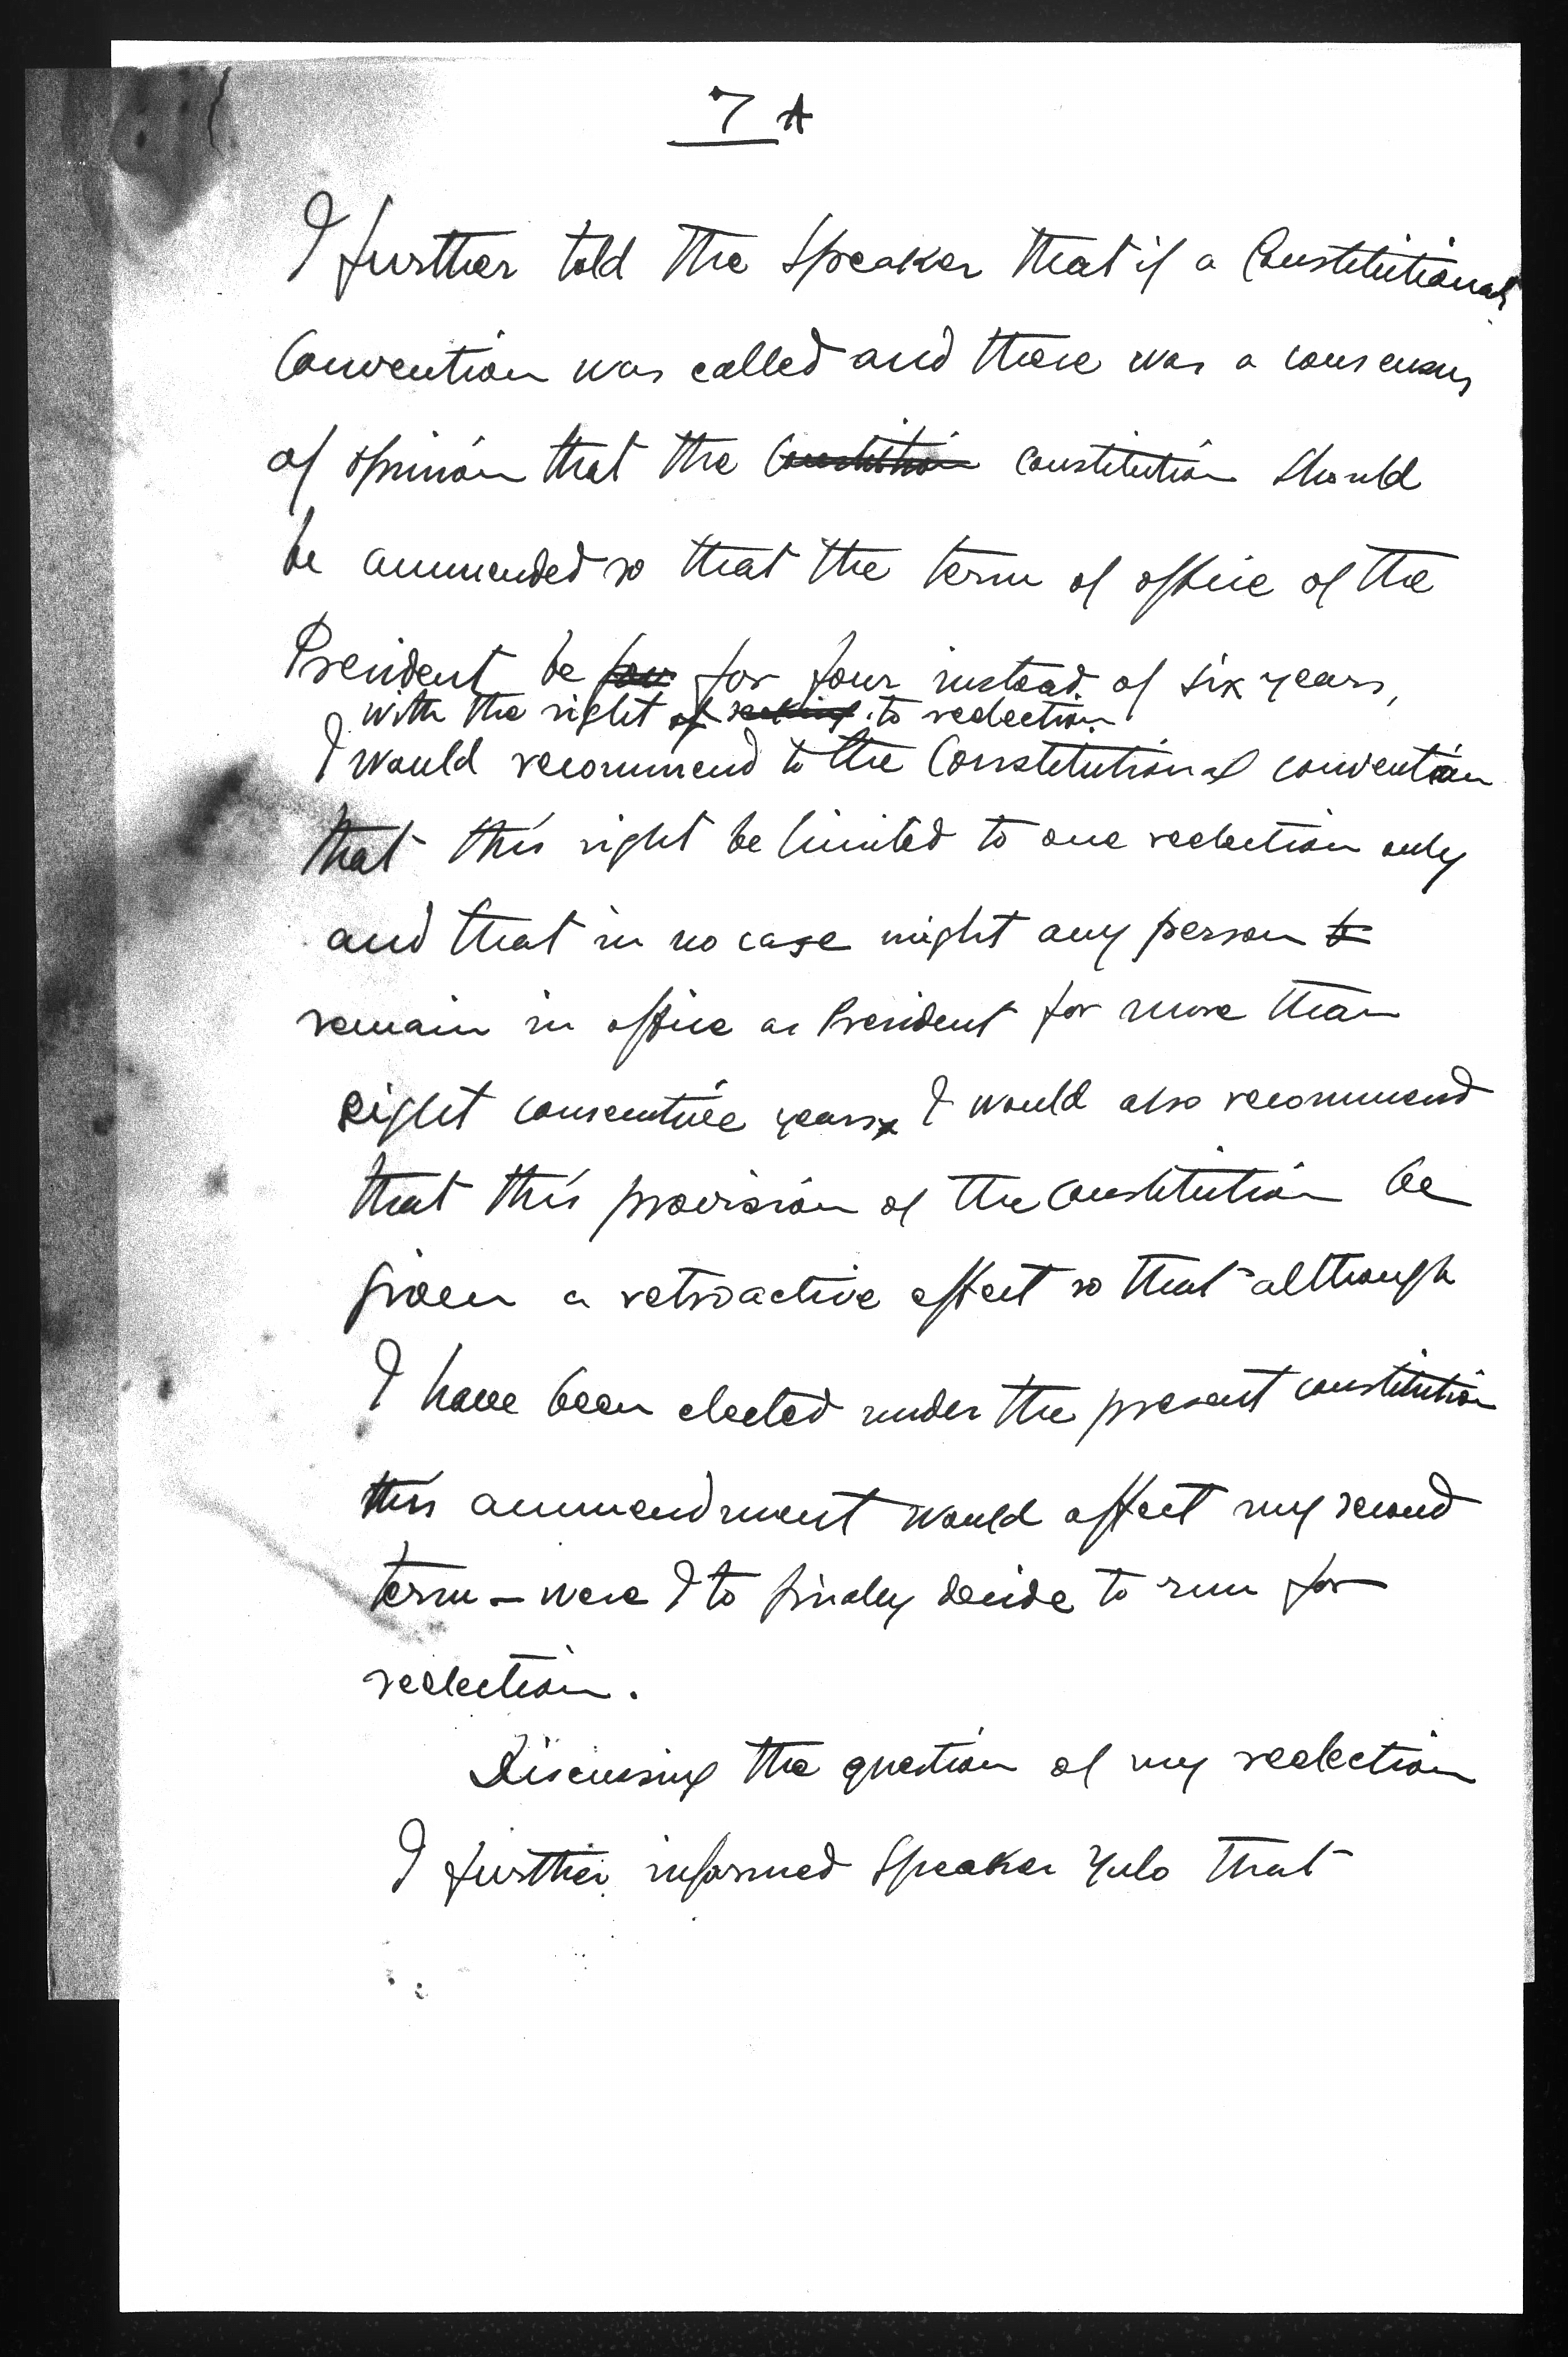 7 A
I further told the Speaker that if a Constitutional
Convention was called and there was a consensus
of opinion that the constitution should
be ammended so that the term of office of the
President be for four instead of six years,
with the right of seeking to reelection
I would recommend to the Constitutional convention
that this right be limited to one reelection only
and that in no case might any person to
remain in office as President for more than
eight consecutive years. I would also recommend
that this provision of the constitution be
given a retroactive effect so that although
I have been elected under the present constitution
this ammendment would affect my second
term – were I to finaly decide to run for
reelection.
Discussing the question of my reelection
I further informed Speaker Yulo that